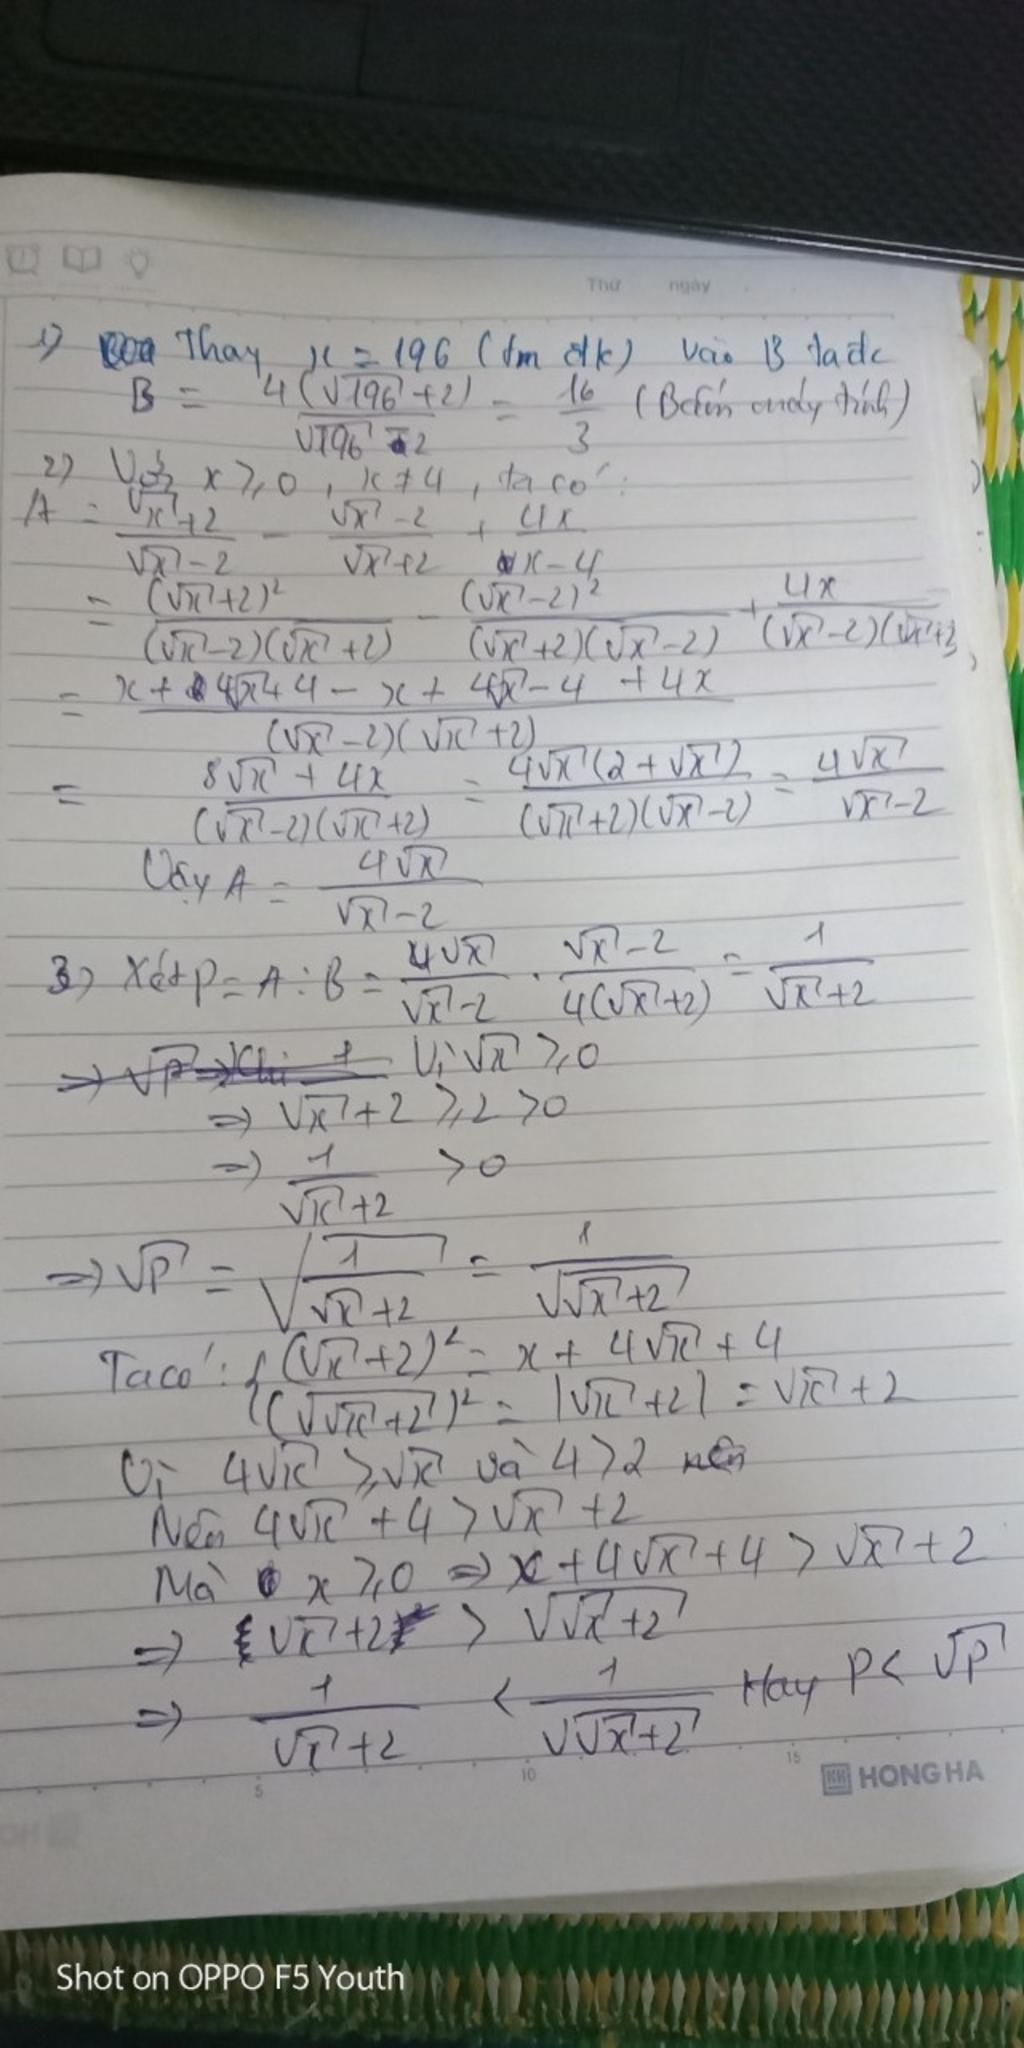 Thứ ngày
1) Thay x = 196 (tm đk) vào B ta đc
B = 4(√196 + 2) / (√196 - 2) = 16/3 (Bấm máy tính)
2) Với x ≥ 0, x ≠ 4, ta có:
A = (√x + 2)/(√x - 2) - (√x - 2)/(√x + 2) + 4x/(x - 4)
= (√x + 2)²/((√x - 2)(√x + 2)) - (√x - 2)²/((√x + 2)(√x - 2)) + 4x/((√x - 2)(√x + 2))
= (x + 4√x + 4 - x + 4√x - 4 + 4x)/((√x - 2)(√x + 2))
= (8√x + 4x)/((√x - 2)(√x + 2)) = 4√x(2 + √x)/((√x + 2)(√x - 2)) = 4√x/(√x - 2)
Vậy A = 4√x/(√x - 2)
3) Xét P = A : B = 4√x/(√x - 2) . (√x - 2)/(4(√x + 2)) = 1/(√x + 2)
Vì √x ≥ 0
⇒ √x + 2 ≥ 2 > 0
⇒ 1/(√x + 2) > 0
⇒ √P = √(1/(√x + 2)) = 1/√(√x + 2)
Ta có: { (√x + 2)² = x + 4√x + 4
(√(√x + 2))² = |√x + 2| = √x + 2
Vì 4√x ≥ √x và 4 > 2
Nên 4√x + 4 > √x + 2
Mà x ≥ 0 ⇒ x + 4√x + 4 > √x + 2
⇒ √x + 2 > √(√x + 2)
⇒ 1/(√x + 2) < 1/√(√x + 2) Hay P < √P
5 10 15
HH HONG HA
Shot on OPPO F5 Youth